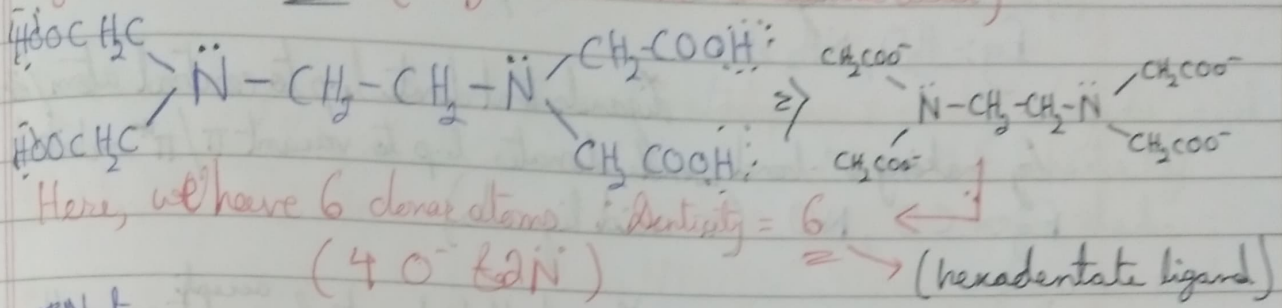 HOOCH₂C CH₂-COOH CH₂COO⁻ CH₂COO⁻
N̈-CH₂-CH₂-N̈ ⇒ N̈-CH₂-CH₂-N̈
HOOCH₂C CH₂COOH CH₂COO⁻ CH₂COO⁻
Here, we have 6 donar atoms ∴ Denticity = 6. ←
(4 O⁻ & 2N̈) → (hexadentate ligand)